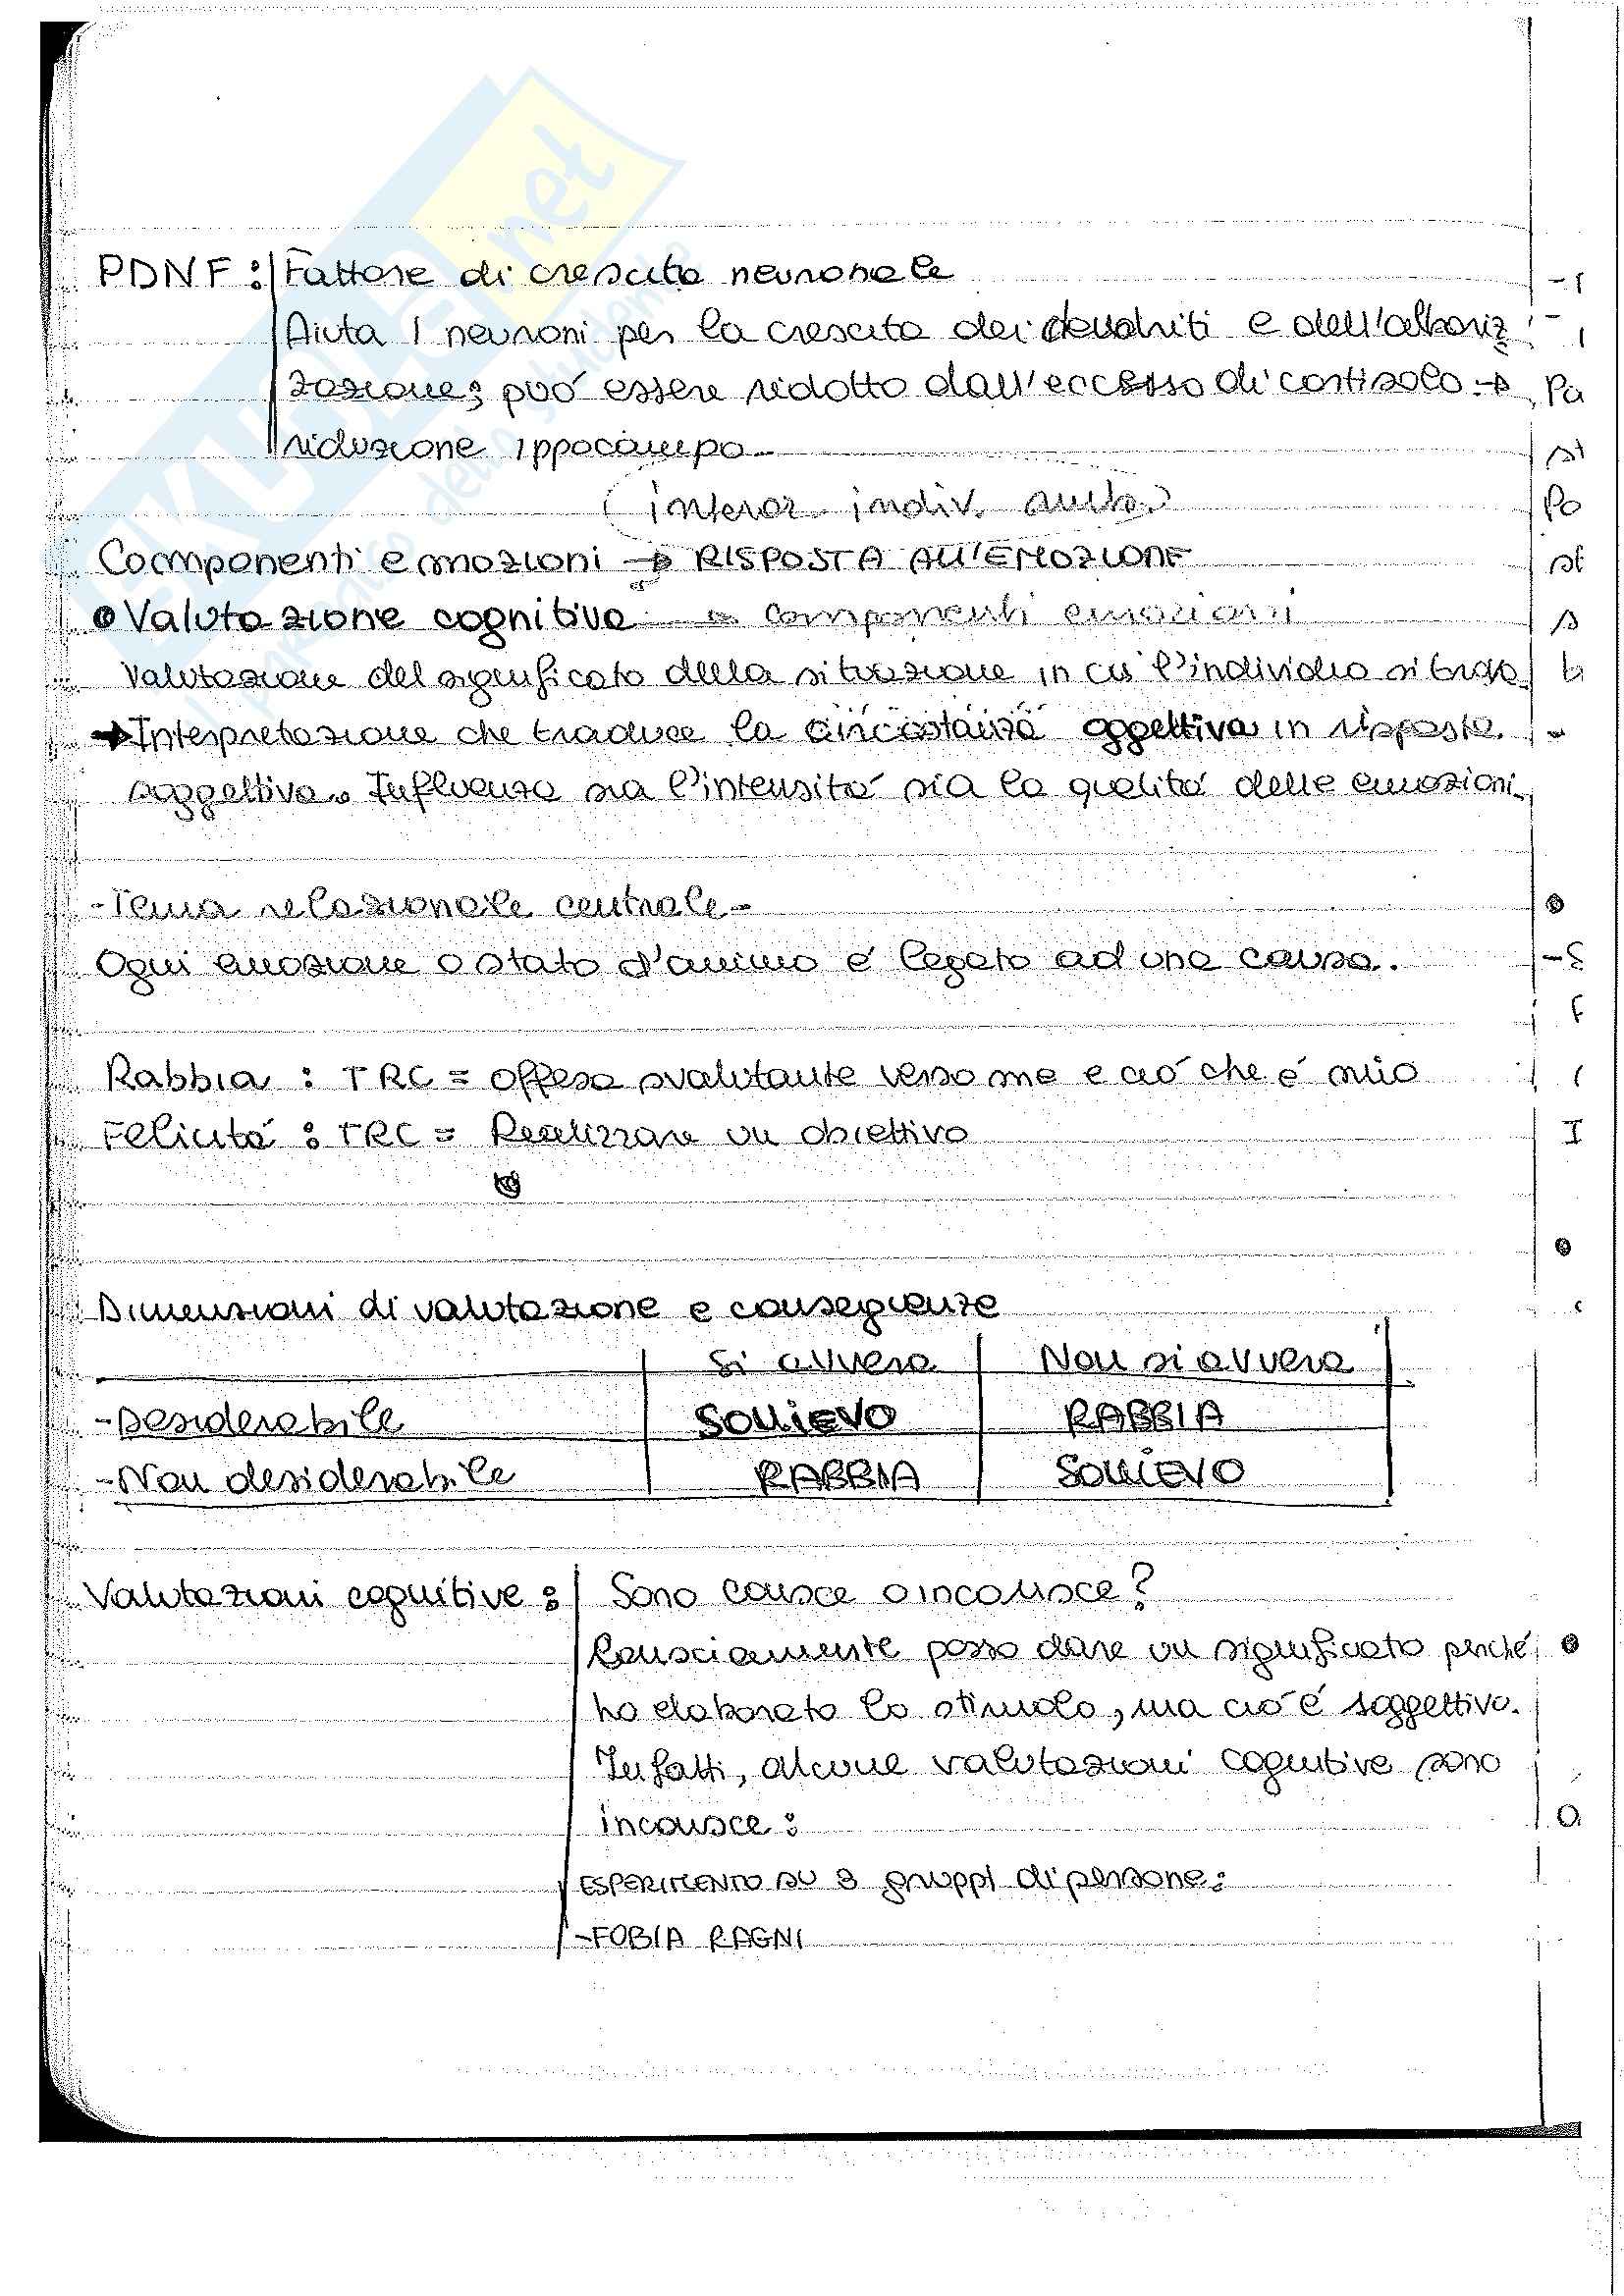 PDNF: Fattore di crescita neuronale
Aiuta i neuroni per la crescita dei dendriti e dell'alboriz
zazione; può essere ridotto dall'eccesso di cortisolo →
riduzione ippocampo
(interaz. indiv. amb.)
Componenti emozioni → RISPOSTA ALL'EMOZIONE
• Valutazione cognitiva componenti emozioni
Valutazione del significato della situazione in cui l'individuo si trova.
→ Interpretazione che traduce la circostanza oggettiva in risposta
soggettiva. Influenza sia l'intensità sia la qualità delle emozioni.
- Tema relazionale centrale -
Ogni emozione o stato d'animo è legato ad una causa.
Rabbia : TRC = offesa svalutante verso me e ciò che è mio
Felicità : TRC = Realizzare un obiettivo
Dimensioni di valutazione e conseguenze
Si avvera Non si avvera
- Desiderabile SOLLIEVO RABBIA
- Non desiderabile RABBIA SOLLIEVO
Valutazioni cognitive : Sono consce o inconsce?
Consciamente posso dare un significato perché
ho elaborato lo stimolo, ma ciò è soggettivo.
Infatti, alcune valutazioni cognitive sono
inconsce :
ESPERIMENTO su 3 gruppi di persone:
- FOBIA RAGNI